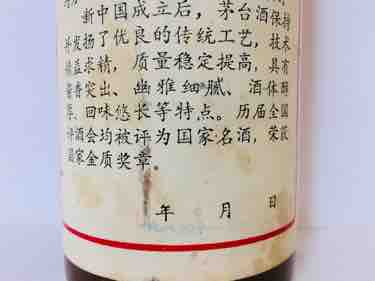 新中国成立后，茅台酒保持
并发扬了优良的传统工艺，技术
精益求精，质量稳定提高，具有
酱香突出、幽雅细腻、酒体醇
厚、回味悠长等特点。历届全国
评酒会均被评为国家名酒，荣获
国家金质奖章。
年 月 日